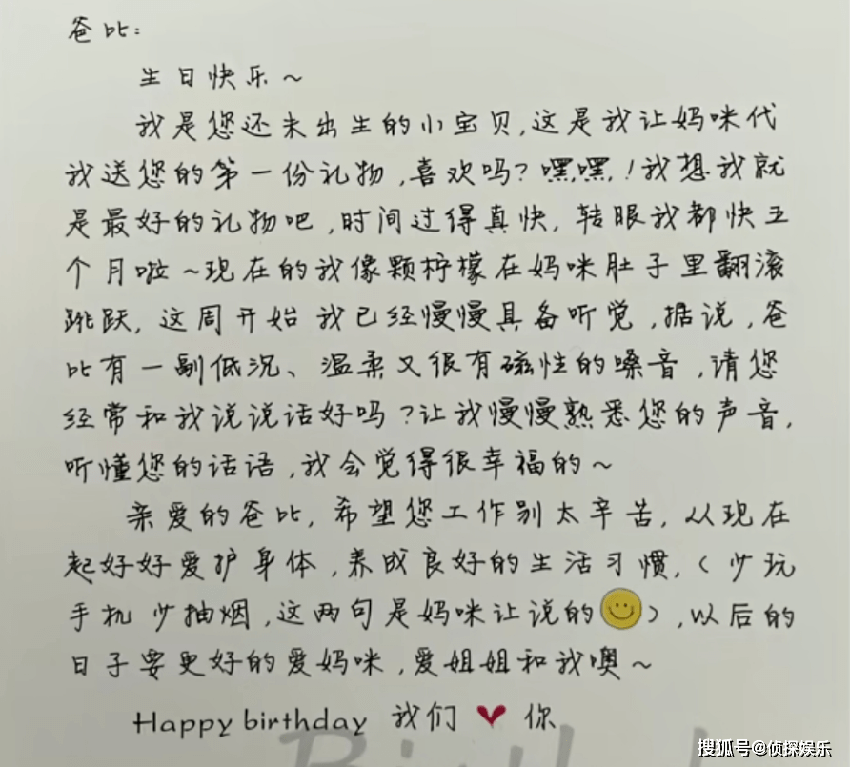 爸比:
生日快乐~
我是您还未出生的小宝贝,这是我让妈咪代
我送您的第一份礼物,喜欢吗?嘿嘿,!我想我就
是最好的礼物吧,时间过得真快,转眼我都快五
个月啦~现在的我像颗柠檬在妈咪肚子里翻滚
跳跃,这周开始我已经慢慢具备听觉,据说,爸
比有一副低沉、温柔又很有磁性的嗓音,请您
经常和我说说话好吗?让我慢慢熟悉您的声音,
听懂您的话语,我会觉得很幸福的~
亲爱的爸比,希望您工作别太辛苦,从现在
起好好爱护身体,养成良好的生活习惯,(少玩
手机少抽烟,这两句是妈咪让说的),以后的
日子要更好的爱妈咪,爱姐姐和我噢~
Happy birthday 我们❤你
Birthd
搜狐号@侦探娱乐